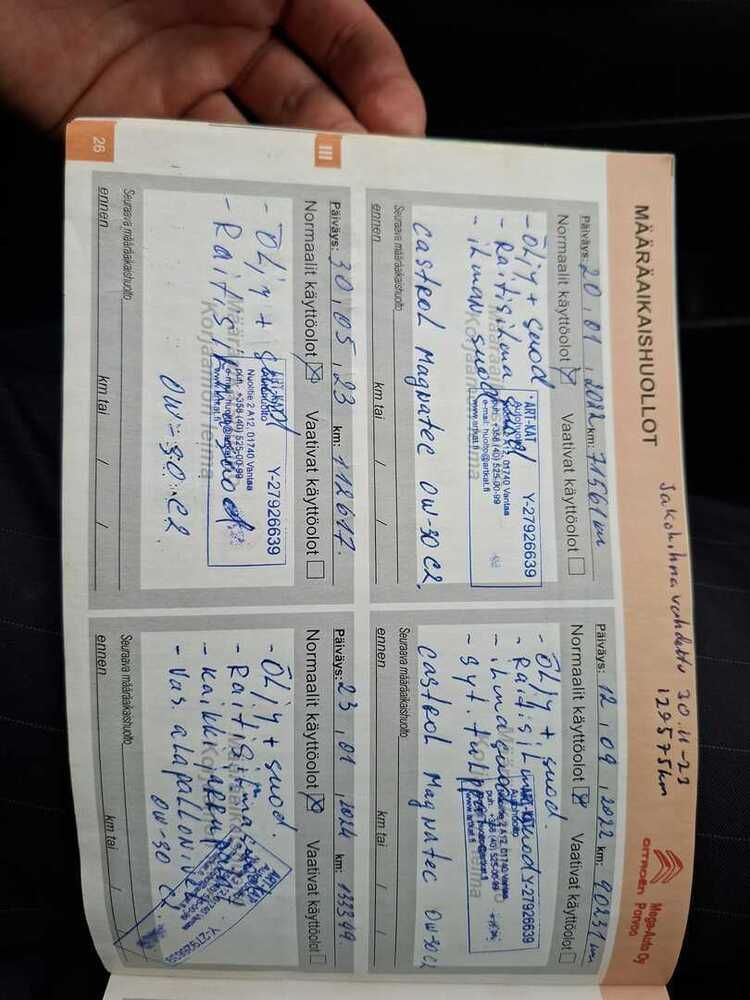 MÄÄRÄAIKAISHUOLLOT
Jakohihna vaihdettu 30.11-23
129575km
CITROËN
Mega-Auto Oy
Porvoo
Päiväys: 20 , 01 , 2022 km: 71561 km
Normaalit käyttöolot Vaativat käyttöolot
- Öljy + suod
- Raitisilma suod
- ilman suod
ART-KAT
Y-27926639
01740 Vantaa
puh. +358 (40) 525-00-99
e-mail: huolto@artkat.fi
www.artkat.fi
Castrol Magnatec 0W-30 C2.
Seuraava määräaikaishuolto
ennen / km tai /
Päiväys: 12 , 09 , 2022 km: 90231 km
Normaalit käyttöolot Vaativat käyttöolot
- Öljy + suod.
- Raitisilma suod
Y-27926639
- syt. tulpat
Castrol Magnatec 0W30 C2
Seuraava määräaikaishuolto
ennen / km tai /
III
Päiväys: 30 , 05 , 23 km: 112617.
Normaalit käyttöolot Vaativat käyttöolot
- Öljy + suod
- Raitisilma suod
Y-27926639
Nuolitie 2 A12, 01740 Vantaa
puh. +358 (40) 525-00-99
e-mail: huolto@artkat.fi
www.artkat.fi
0W-30 C2
Seuraava määräaikaishuolto
ennen / km tai /
Päiväys: 23 , 01 , 2024 km: 133349
Normaalit käyttöolot Vaativat käyttöolot
- Öljy + suod.
- Raitisilma
- Kaikki
- Vas alapallonivel
0W-30 C2
Y-27926639
Seuraava määräaikaishuolto
ennen / km tai /
26